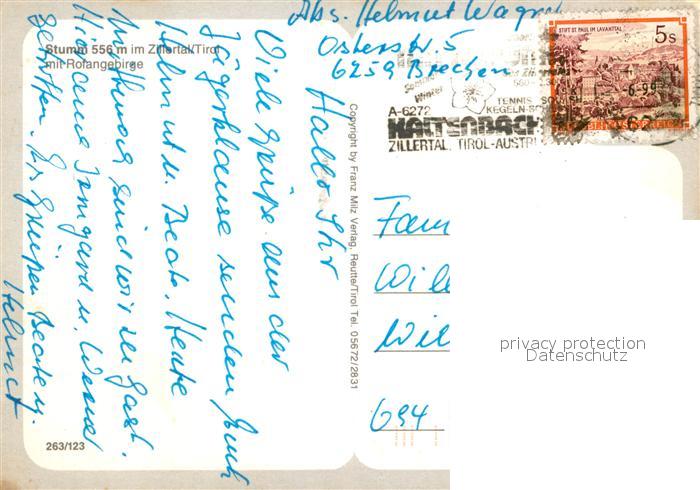 Abs. Helmut Wagner
Osterstr. 5
6259 Brechen
Stumm 556 m im Zillertal/Tirol
mit Rofangebirge
STIFT ST. PAUL IM LAVANTTAL
5s
REPUBLIK ÖSTERREICH
-6.99
Winter
TENNIS
KEGELN
A-6272
KALTENBACH
ZILLERTAL, TIROL-AUSTR
Hallo Ihr
Viele Grüße aus der
Jägerklause senden Euch
Helmut u. Beate. Heute
Mittwoch sind wir zu Gast.
Haben Irmgard u. Werner
getroffen. Es grüßen Beate u.
Helmut
Copyright by Franz Milz Verlag, Reutte/Tirol Tel. 05672/2831
Fam
Wil
Wil
694
privacy protection
Datenschutz
263/123